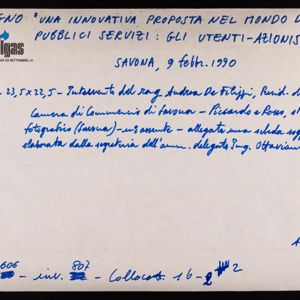 GNO "UNA INNOVATIVA PROPOSTA NEL MONDO D
PUBBLICI SERVIZI: GLI UTENTI-AZIONIS
lgas
SAVONA, 9 febbr. 1990
23,5x22,5 - Intervento del rag. Andrea De Filippi, Presid. de
Camera di Commercio di Savona - Piccardo e Rosso, st
fotografico (Savona) - assente - allegata una scheda
elaborata dalla segreteria dell'amm. delegato Ing. Ottavian
A
606
inv. 807
- Collocaz. 16-2 2